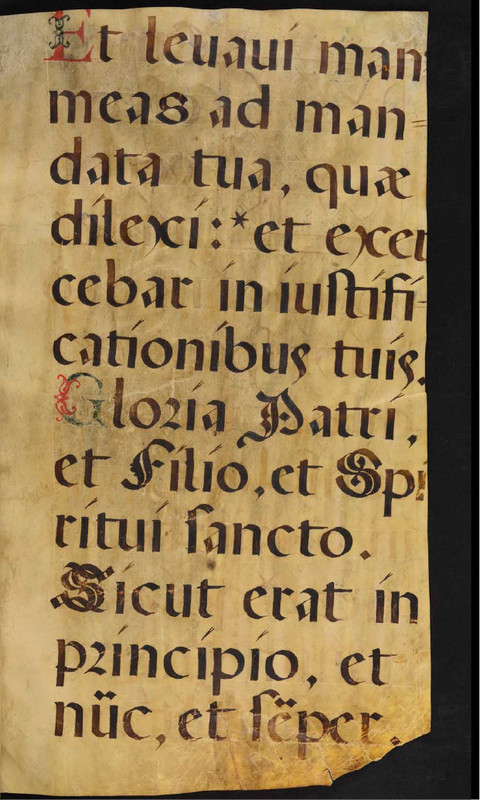 Et leuaui man
meas ad man-
data tua, quæ
dilexi:*et exer
cebar in iustifi-
cationibus tuis.
Gloria Patri,
et Filio, et Spi
ritui sancto.
Sicut erat in
principio, et
nüc, et sëper.